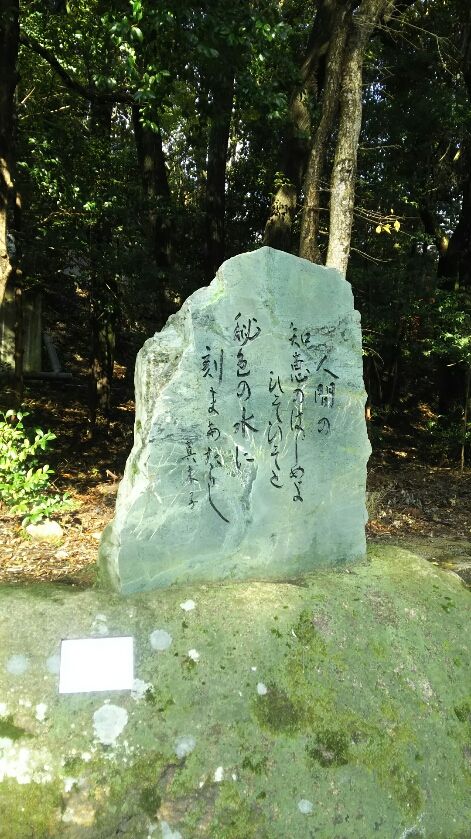 人間の
知恵のはじめよ
ひそひそと
秘色の水に
刻まあたらし
真木子